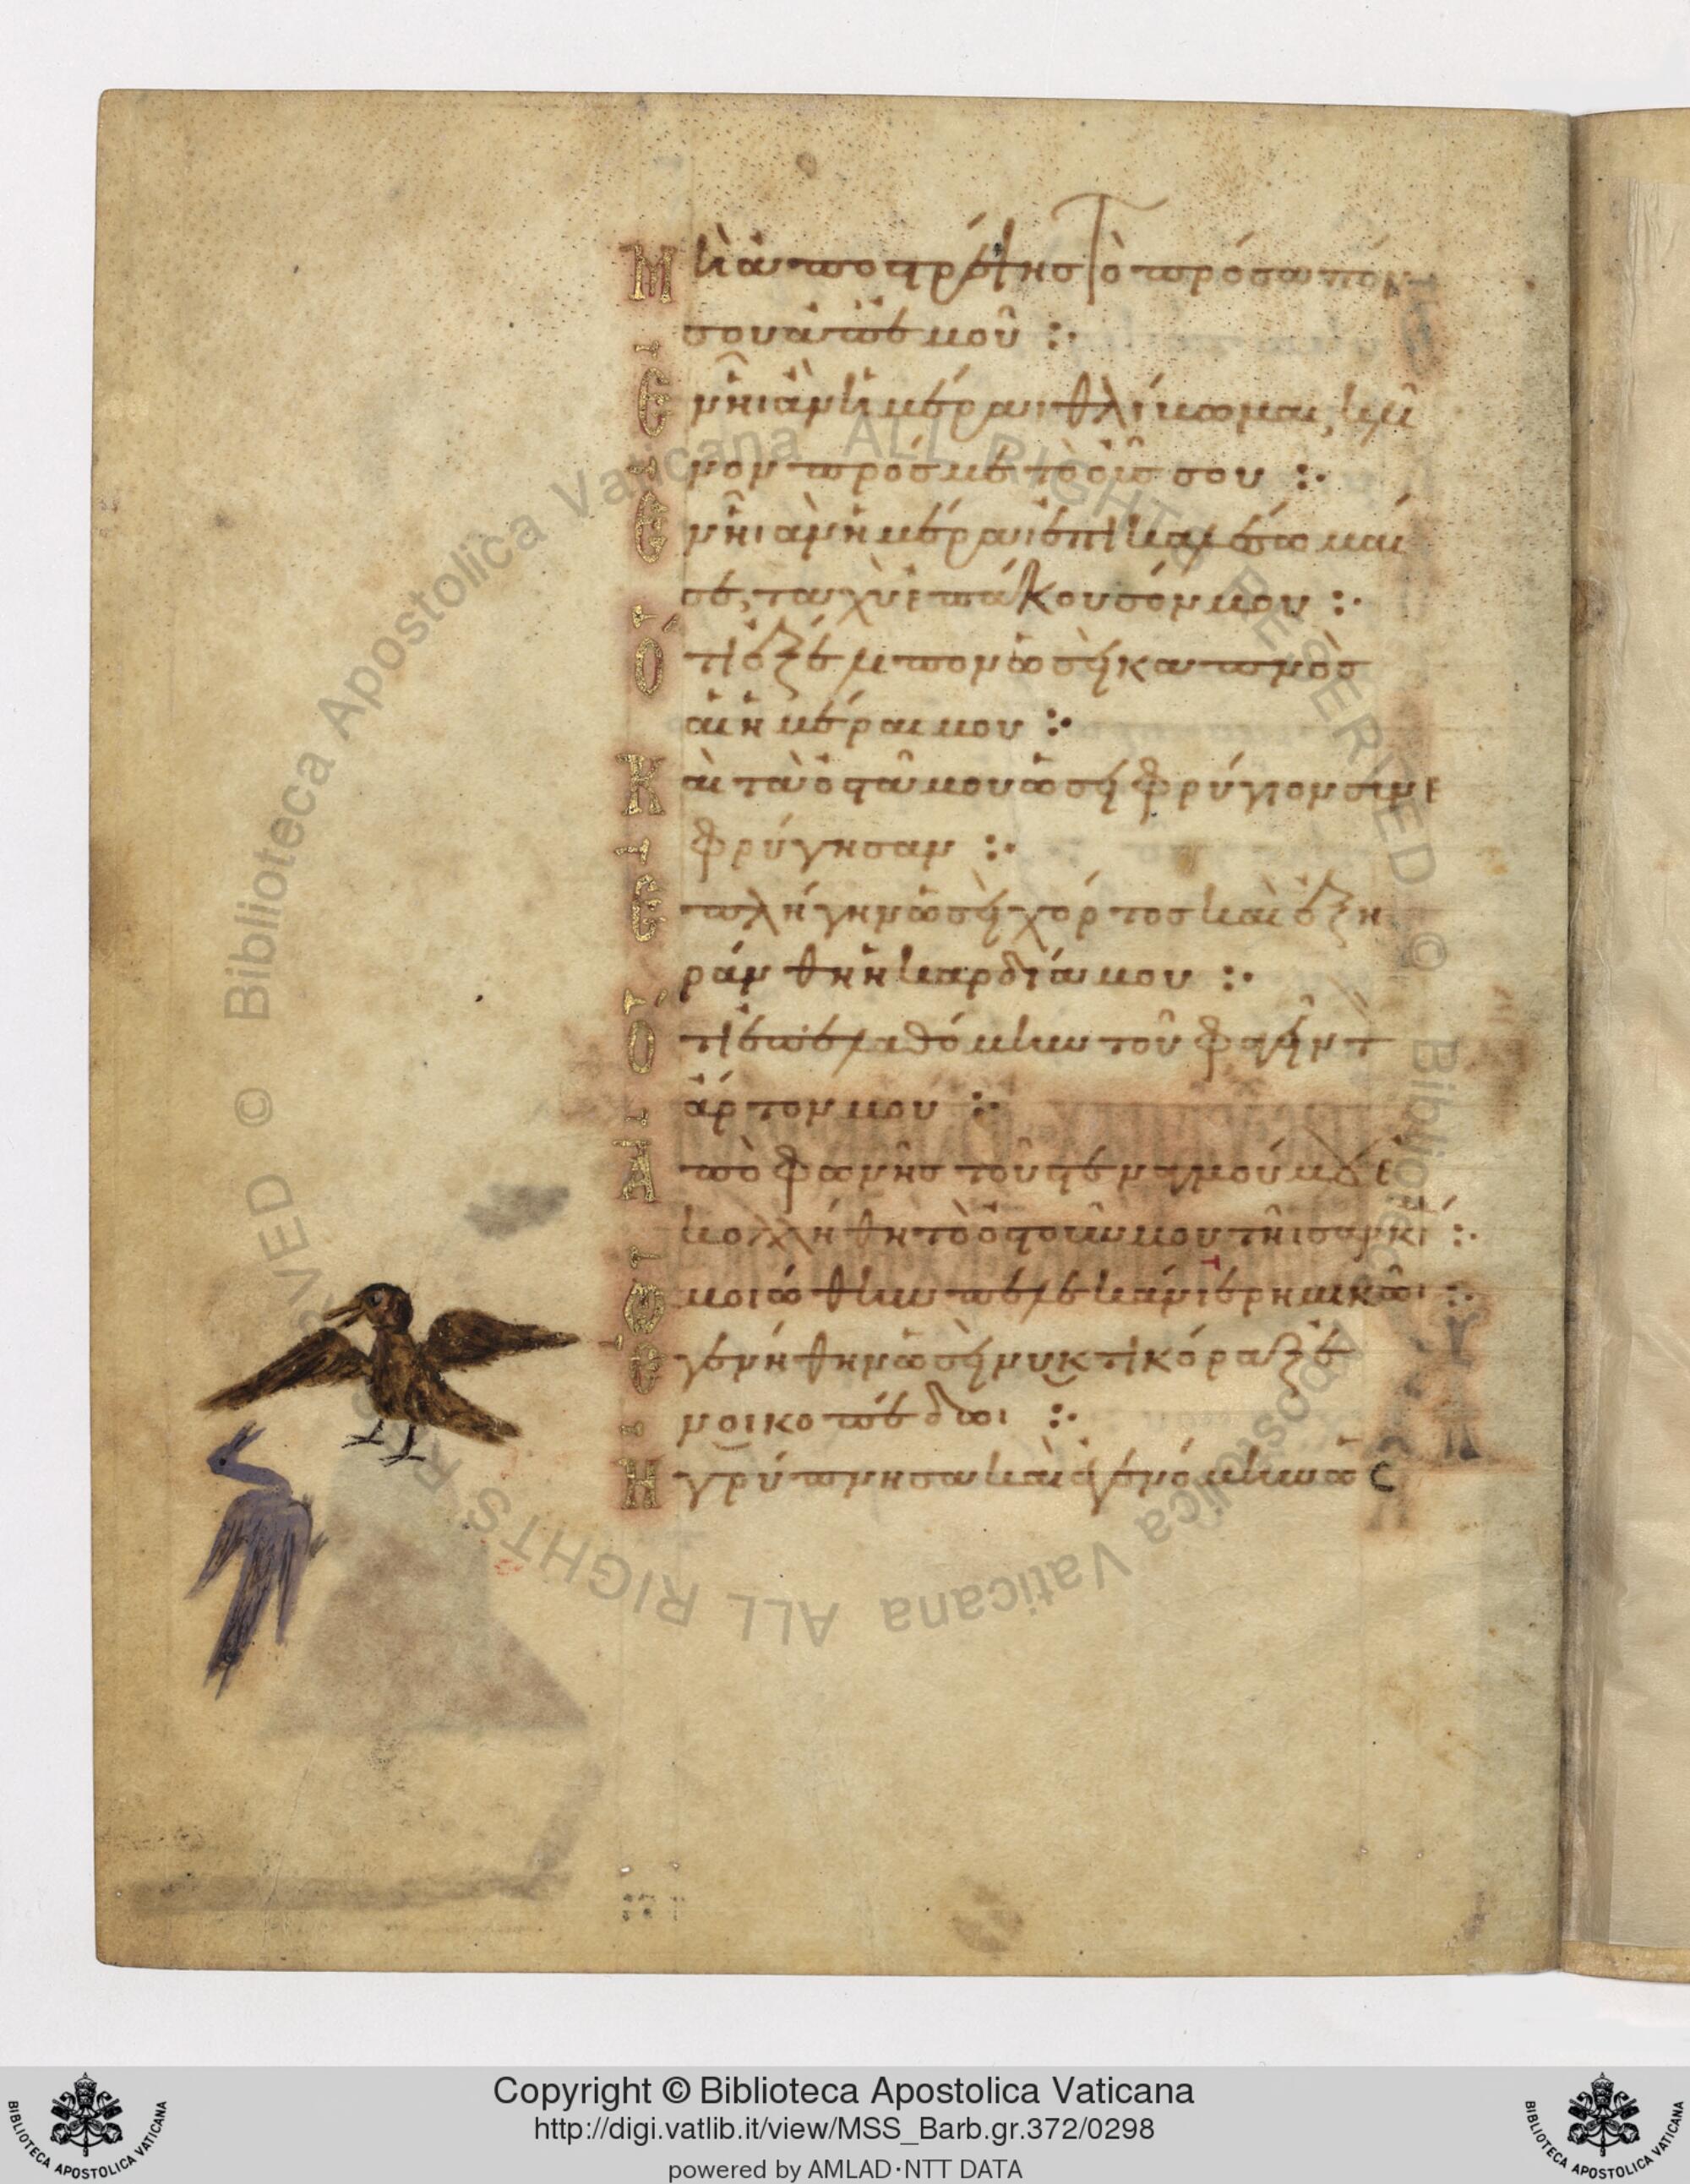 Μὴ ἀποστρέψῃς τὸ πρόσωπόν
σου ἀπ' ἐμοῦ :·
Ἐν ᾗ ἂν ἡμέραι θλίβωμαι, κλῖ
νον πρός με τὸ οὖς σου :·
Ἐν ᾗ ἂν ἡμέραι ἐπικαλέσωμαί
σε, ταχὺ ἐπάκουσόν μου :·
Ὅτι ἐξέλιπον ὡσεὶ καπνὸς
αἱ ἡμέραι μου :·
Καὶ τὰ ὀστᾶ μου ὡσεὶ φρύγιον συνε
φρύγησαν :·
Ἐπλήγην ὡσεὶ χόρτος καὶ ἐξη
ράνθη ἡ καρδία μου :·
Ὅτι ἐπελαθόμην τοῦ φαγεῖν τ
ἄρτον μου :·
Ἀπὸ φωνῆς τοῦ στεναγμοῦ μου ἐ
κολλήθη τὸ ὀστοῦν μου τῆι σαρκί :·
Ὡμοιώθην πελεκάνι ἐρημικῶι :·
Ἐγενήθην ὡσεὶ νυκτικόραξ ἐ
ν οικοπέδωι :·
Ἠγρύπνησα καὶ ἐγενόμην ὡς
Copyright © Biblioteca Apostolica Vaticana
http://digi.vatlib.it/view/MSS_Barb.gr.372/0298
powered by AMLAD·NTT DATA
BIBLIOTECA APOSTOLICA VATICANA
BIBLIOTECA APOSTOLICA VATICANA
© Biblioteca Apostolica Vaticana ALL RIGHTS RESERVED © Biblioteca Apostolica Vaticana ALL RIGHTS RESERVED